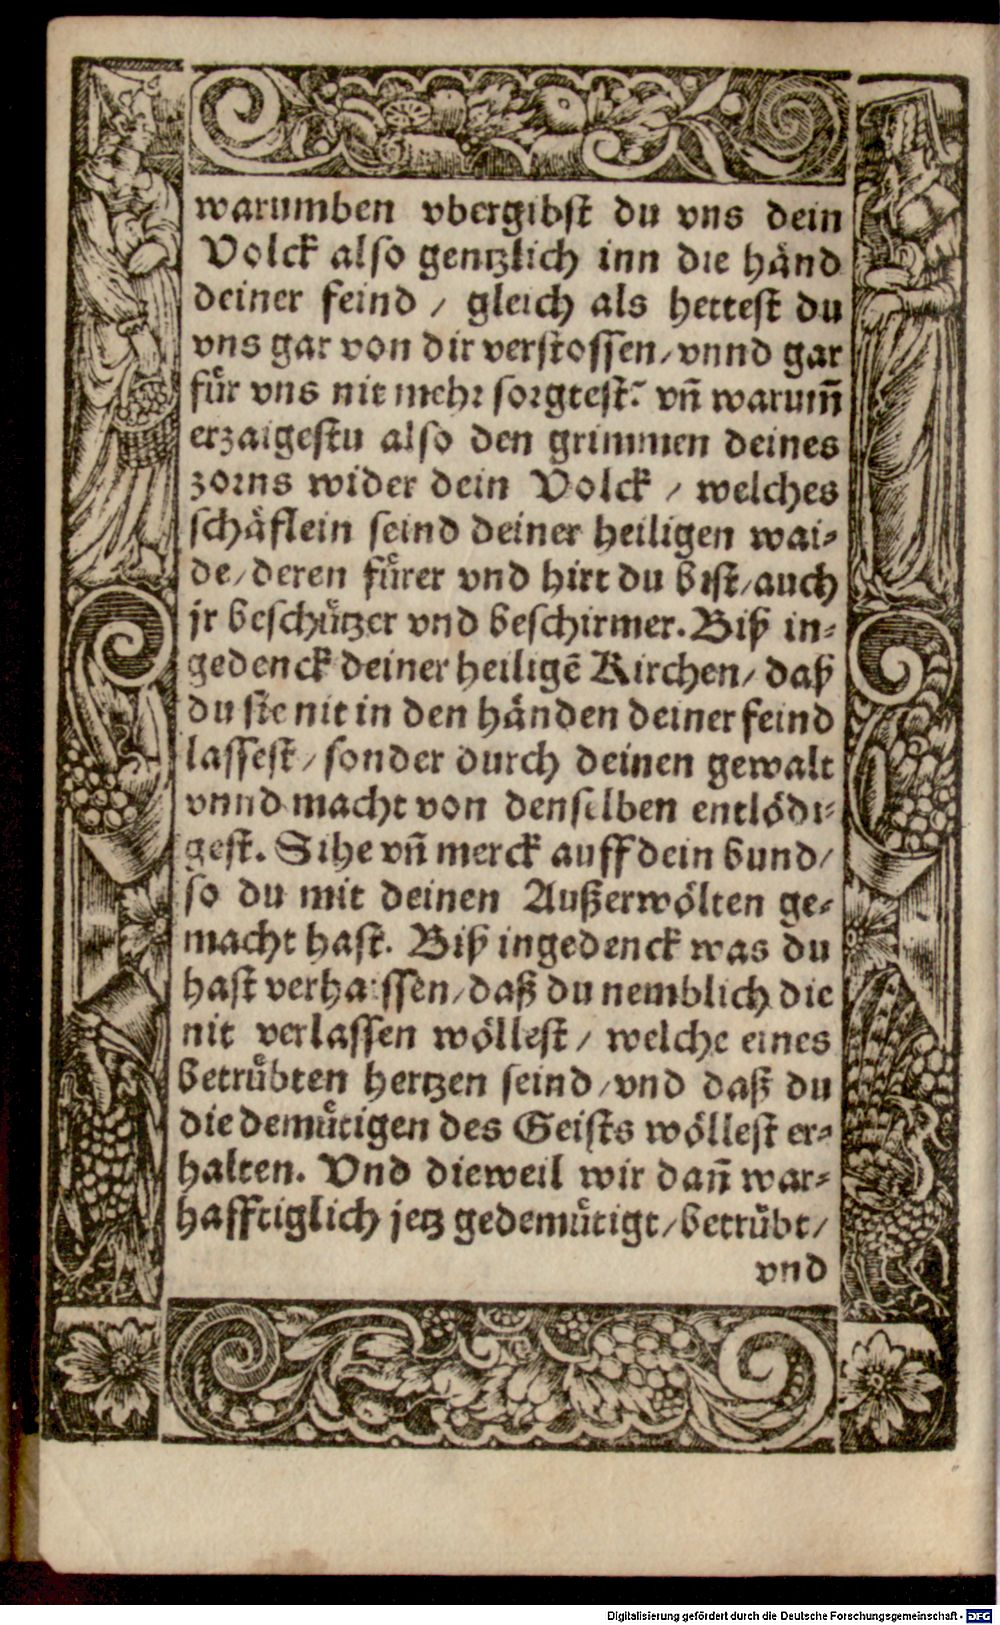 warumben vbergibst du vns dein
Volck also gentzlich inn die händ
deiner feind / gleich als hettest du
vns gar von dir verstossen / vnnd gar
für vns nit mehr sorgtest? vñ warum̃
erzaigestu also den grimmen deines
zorns wider dein Volck / welches
schäflein seind deiner heiligen wai-
de / deren fürer vnd hirt du bist / auch
jr beschützer vnd beschirmer. Biß in-
gedenck deiner heiligẽ Kirchen / daß
du sie nit in den händen deiner feind
lassest / sonder durch deinen gewalt
vnnd macht von denselben entlödi-
gest. Sihe vñ merck auff dein bund /
so du mit deinen Außerwölten ge-
macht hast. Biß ingedenck was du
hast verhaissen / daß du nemblich die
nit verlassen wöllest / welche eines
betrübten hertzen seind / vnd daß du
die demütigen des Geists wöllest er-
halten. Vnd dieweil wir dañ war-
hafftiglich jetz gedemütigt / betrübt /
vnd
Digitalisierung gefördert durch die Deutsche Forschungsgemeinschaft - DFG